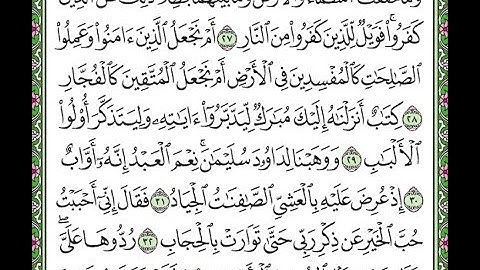 وَمَا خَلَقْنَا ٱلسَّمَآءَ وَٱلْأَرْضَ وَمَا بَيْنَهُمَا
كَفَرُوا۟ ۚ فَوَيْلٌ لِّلَّذِينَ كَفَرُوا۟ مِنَ ٱلنَّارِ ٢٧ أَمْ نَجْعَلُ ٱلَّذِينَ ءَامَنُوا۟ وَعَمِلُوا۟
ٱلصَّٰلِحَٰتِ كَٱلْمُفْسِدِينَ فِى ٱلْأَرْضِ أَمْ نَجْعَلُ ٱلْمُتَّقِينَ كَٱلْفُجَّارِ
٢٨ كِتَٰبٌ أَنزَلْنَٰهُ إِلَيْكَ مُبَٰرَكٌ لِّيَدَّبَّرُوٓا۟ ءَايَٰتِهِۦ وَلِيَتَذَكَّرَ أُو۟لُوا۟
ٱلْأَلْبَٰبِ ٢٩ وَوَهَبْنَا لِدَاوُۥدَ سُلَيْمَٰنَ ۚ نِعْمَ ٱلْعَبْدُ ۖ إِنَّهُۥٓ أَوَّابٌ
٣٠ إِذْ عُرِضَ عَلَيْهِ بِٱلْعَشِىِّ ٱلصَّٰفِنَٰتُ ٱلْجِيَادُ ٣١ فَقَالَ إِنِّىٓ أَحْبَبْتُ
حُبَّ ٱلْخَيْرِ عَن ذِكْرِ رَبِّى حَتَّىٰ تَوَارَتْ بِٱلْحِجَابِ ٣٢ رُدُّوهَا عَلَىَّ ۖ